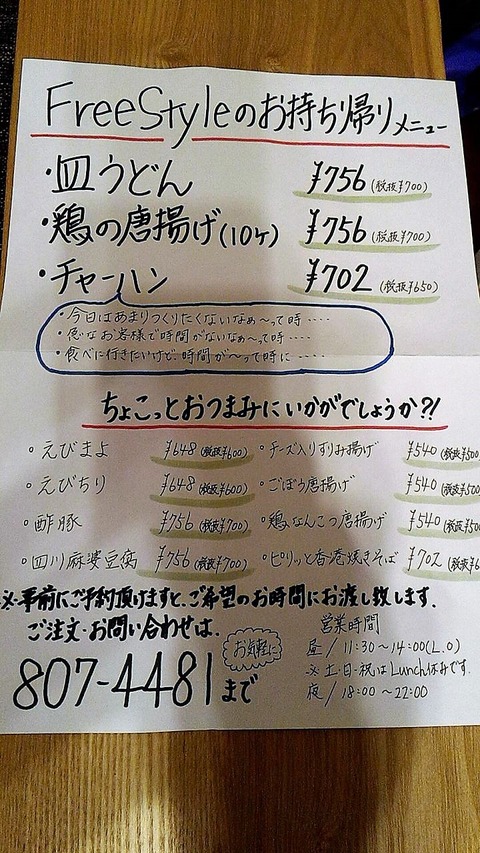 FreeStyleのお持ち帰りメニュー
・皿うどん ¥756(税抜¥700)
・鶏の唐揚げ(10ケ) ¥756(税抜¥700)
・チャーハン ¥702(税抜¥650)
・今日はあまりつくりたくないなぁ〜って時‥‥
・急なお客様で時間がないなぁ〜って時‥‥
・食べに行きたいけど、時間が〜って時に‥‥
ちょこっとおつまみにいかがでしょうか?!
・えびまよ ¥648(税抜¥600) ・チーズ入りすりみ揚げ ¥540(税抜¥500
・えびちり ¥648(税抜¥600) ・ごぼう唐揚げ ¥540(税抜¥500
・酢豚 ¥756(税抜¥700) ・鶏なんこつ唐揚げ ¥540(税抜¥500
・四川麻婆豆腐 ¥756(税抜¥700) ・ピリッと香港焼きそば ¥702(税抜¥6
※事前にご予約頂けますと、ご希望のお時間にお渡し致します.
ご注文・お問い合わせは、
お気軽に
807-4481まで
営業時間
昼/11:30〜14:00(L.O)
※土・日・祝はLunch休みです.
夜/18:00〜22:00